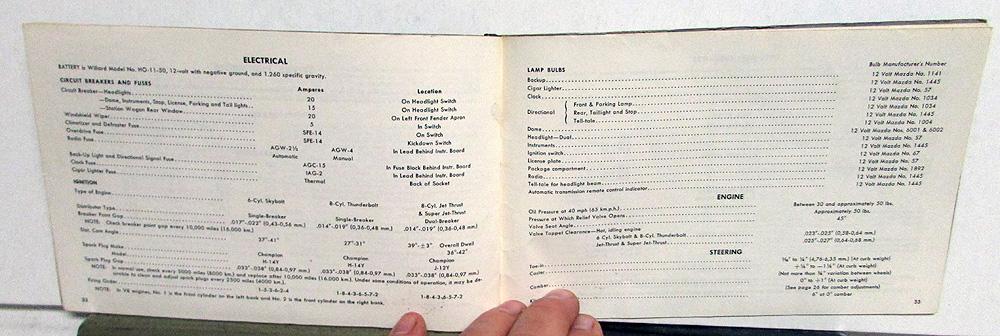 ELECTRICAL
BATTERY is Willard Model No. HO-11-50, 12-volt with negative ground, and 1.260 specific gravity.
CIRCUIT BREAKERS AND FUSES Amperes Location
Circuit Breaker—Headlights 20 On Headlight Switch
—Dome, Instruments, Stop, License, Parking and Tail lights 15 On Headlight Switch
—Station Wagon Rear Window 20 On Left Front Fender Apron
Windshield Wiper 5 In Switch
Climatizer and Defroster Fuse SFE-14 On Switch
Overdrive Fuse SFE-14 Kickdown Switch
Radio Fuse AGW-2½ AGW-4 In Lead Behind Instr. Board
Automatic Manual
Back-Up Light and Directional Signal Fuse AGC-15 In Fuse Block Behind Instr. Board
Clock Fuse IAG-2 In Lead Behind Instr. Board
Cigar Lighter Fuse Thermal Back of Socket
IGNITION
Type of Engine 6-Cyl. Skybolt 8-Cyl. Thunderbolt 8-Cyl. Jet Thrust
& Super Jet-Thrust
Distributor Type Single-Breaker Single-Breaker Dual-Breaker
Breaker Point Gap .017"-.023" (0,43-0,56 mm.) .014"-.019" (0,36-0,48 mm.) .014"-.019" (0,36-0,48 mm.)
NOTE: Check breaker point gap every 10,000 miles (16,000 km.)
Dist. Cam Angle 37°-41° 27°-31° 39°-±3° Overall Dwell
36°-42°
Spark Plug Make Champion Champion Champion
Model H-14Y H-14Y J-12Y
Spark Plug Gap .033"-.038" (0,84-0,97 mm.) .033"-.038" (0,84-0,97 mm.) .033"-.038" (0,84-0,97 mm.)
NOTE: In normal use, check every 5000 miles (8000 km.) and replace after 10,000 miles (16,000 km.) Under some conditions of operation, it may be de-
sirable to clean and adjust spark plugs every 2500 miles (4000 km.).
Firing Order 1-5-3-6-2-4 1-8-4-3-6-5-7-2 1-8-4-3-6-5-7-2
NOTE: In V8 engines, No. 1 is the front cylinder on the left bank and No. 2 is the front cylinder on the right bank.
LAMP BULBS Bulb Manufacturer's Number
Backup 12 Volt Mazda No. 1141
Cigar Lighter 12 Volt Mazda No. 1445
Clock 12 Volt Mazda No. 57
Directional Front & Parking Lamp 12 Volt Mazda No. 1034
Rear, Taillight and Stop 12 Volt Mazda No. 1034
Tell-tale 12 Volt Mazda No. 1445
Dome 12 Volt Mazda No. 1004
Headlight—Dual 12 Volt Mazda Nos. 4001 & 4002
Instruments 12 Volt Mazda No. 57
Ignition switch 12 Volt Mazda No. 1445
License plate 12 Volt Mazda No. 67
Package compartment 12 Volt Mazda No. 57
Radio 12 Volt Mazda No. 1892
Tell-tale for headlight beam 12 Volt Mazda No. 1445
Automatic transmission remote control indicator 12 Volt Mazda No. 1445
ENGINE
Oil Pressure at 40 mph (65 km.p.h.) Between 30 and approximately 50 lbs.
Pressure at Which Relief Valve Opens Approximately 50 lbs.
Valve Seat Angle 45°
Valve Tappet Clearance—Hot, idling engine
6 Cyl. Skybolt & 8-Cyl. Thunderbolt .023"-.025" (0,58-0,64 mm.)
Jet-Thrust & Super Jet-Thrust .025"-.027" (0,64-0,68 mm.)
STEERING
Toe-in (At curb weight)
Caster +¼° to -1¼° (At curb weight)
(Not more than ¾° variation between wheels)
Camber 0° to +1° (At curb weight)
(See page 26 for camber adjustments)
6° at 0° camber
33